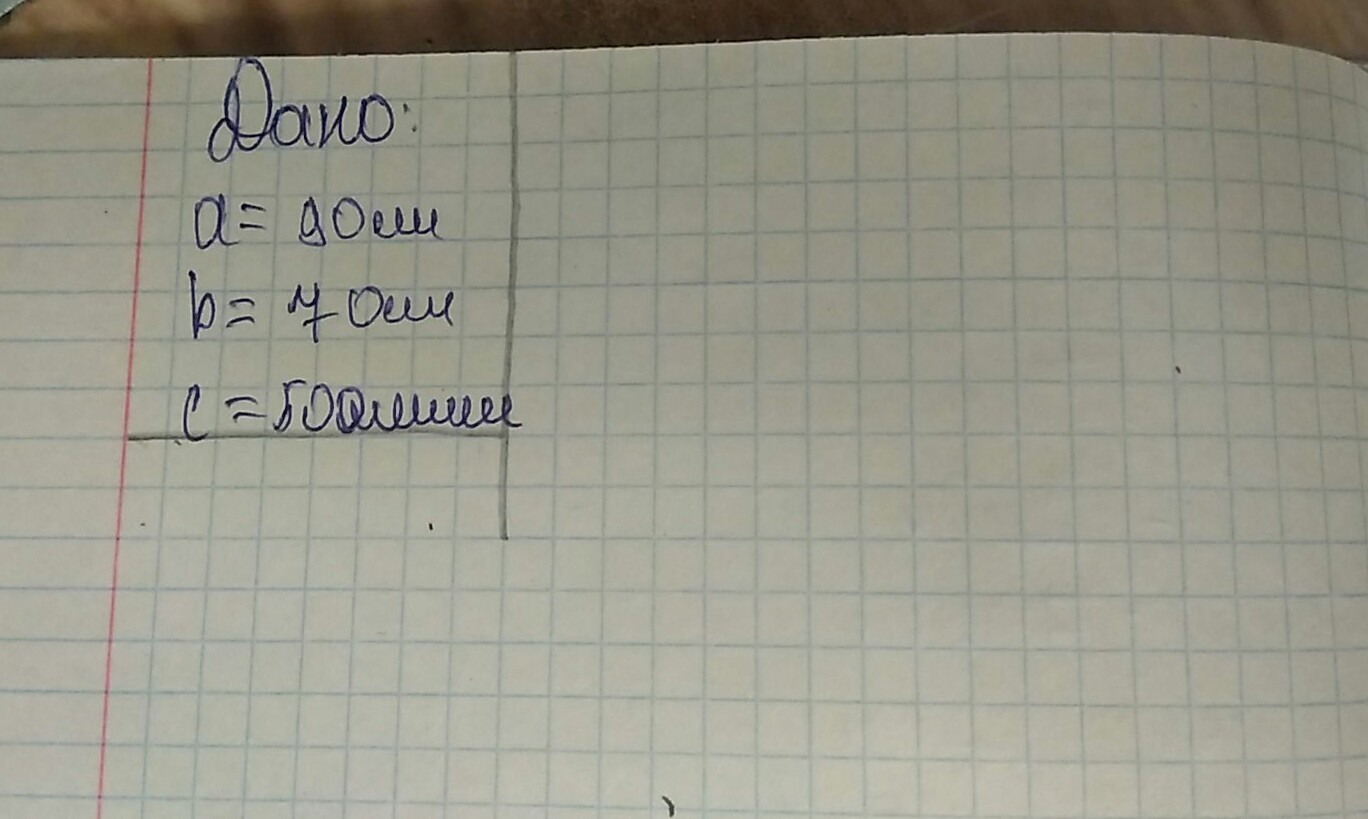 Дано:
a = 90см
b = 70см
c = 500мм